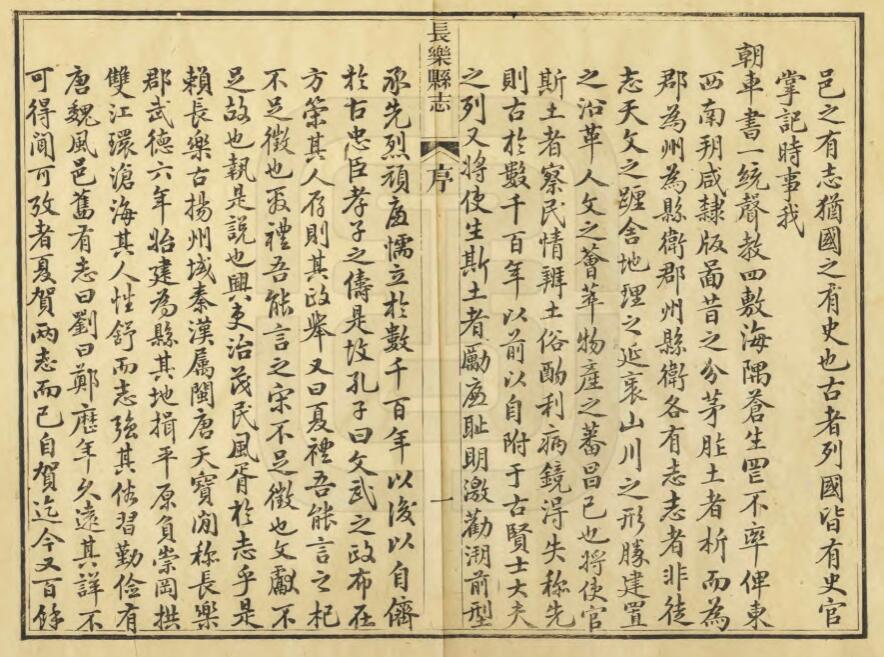 邑之有志猶國之有史也古者列國皆有史官
掌記時事我
朝車書一統聲教四敷海隅蒼生罔不率俾東
西南朔咸隸版圖昔之分茅胙土者析而為
郡為州為縣衛郡州縣衛各有志志者非徒
志天文之躔舍地理之延袤山川之形勝建置
之沿革人文之薈萃物產之蕃昌已也將使官
斯土者察民情辨土俗酌利病鏡得失称先
則古於數千百年以前以自附于古賢士大夫
之列又將使生斯土者勵廉耻明激勸溯前型
長樂縣志
序
一
承先烈頑廉懦立於數千百年以後以自儕
於古忠臣孝子之儔是故孔子曰文武之政布在
方策其人存則其政舉又曰夏禮吾能言之杞
不足徵也殷禮吾能言之宋不足徵也文獻不
足故也執是說也興吏治茂民風胥於志乎是
賴長樂古揚州域秦漢属閩唐天寶間称長樂
郡武德六年始建為縣其地揖平原負崇岡拱
雙江環滄海其人性舒而志強其俗習勤儉有
唐魏風邑舊有志曰劉曰鄭歷年久遠其詳不
可得聞可攷者夏賀兩志而已自賀迄今又百餘